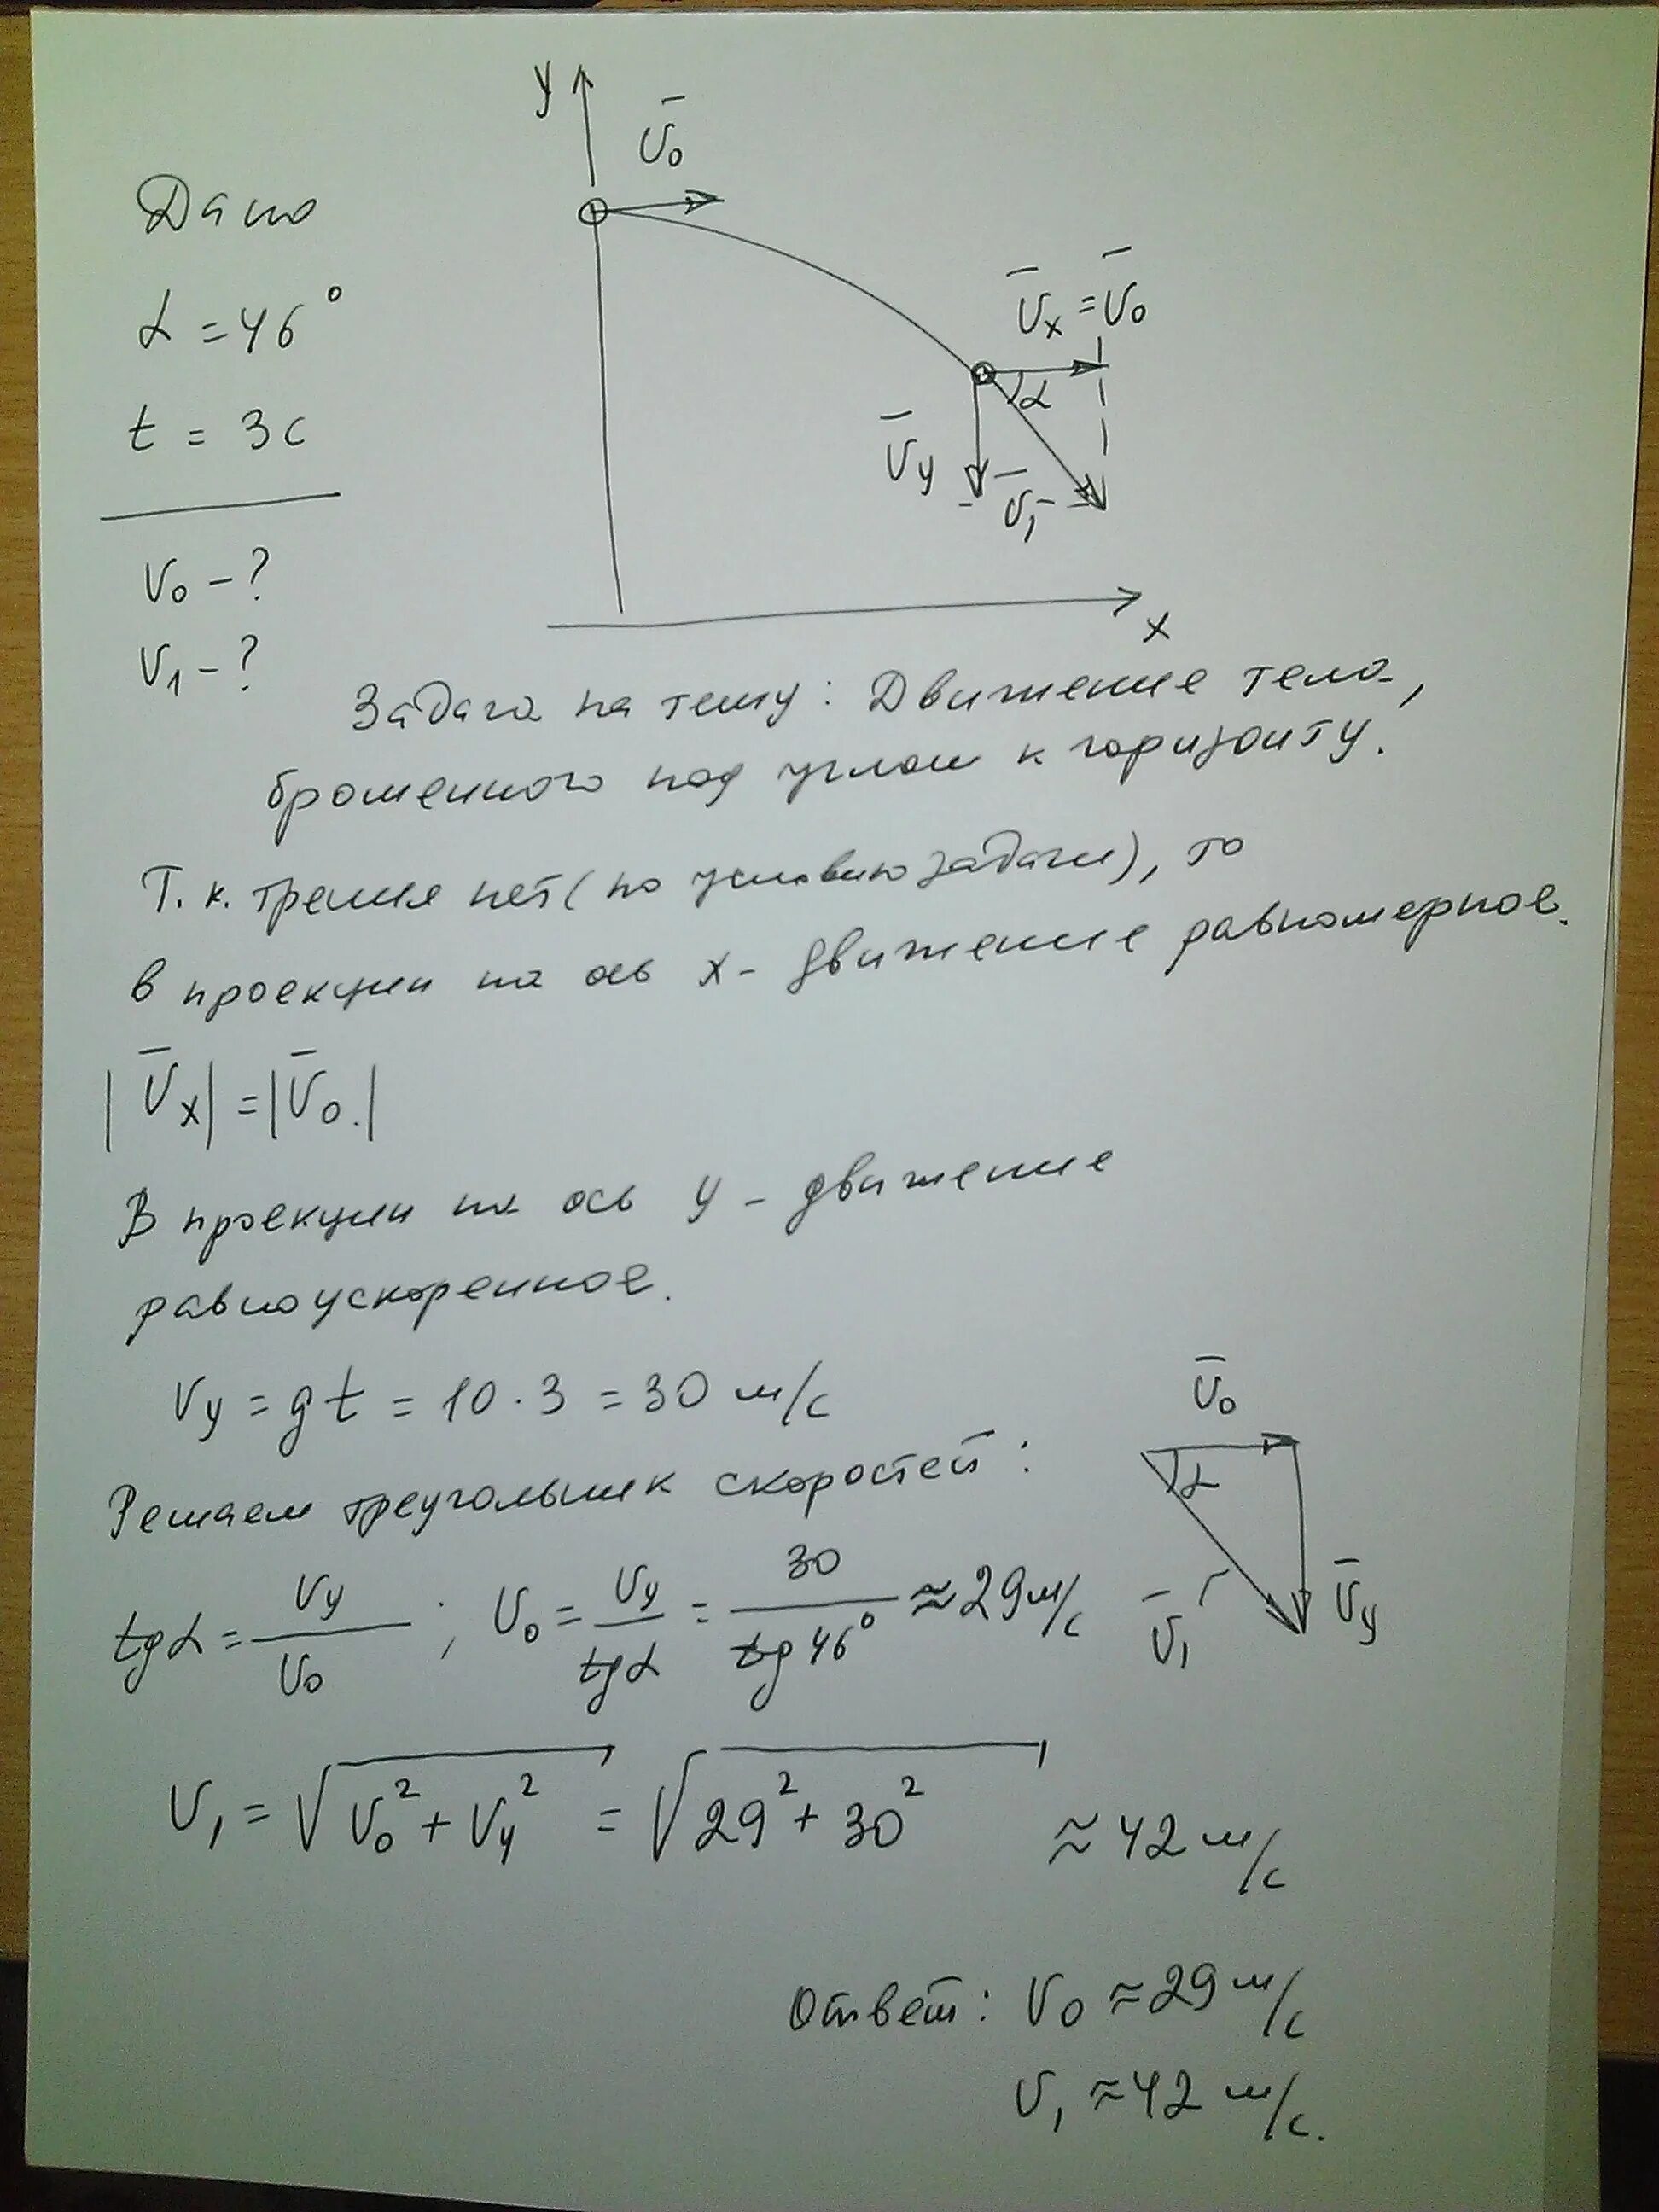 y
V̅₀
Дано
α = 46°
t = 3с
V₀ – ?
V₁ – ?
V̅x = V̅₀
α
V̅y
V̅₁
x
Задача на тему: Движение тела,
брошенного под углом к горизонту.
Т.к. трения нет (по условию задачи), то
в проекции на ось x - движение равномерное.
|V̅x| = |V̅₀.|
В проекции на ось y - движение
равноускоренное.
Vy = gt = 10 · 3 = 30 м/с
Решаем треугольник скоростей:
V̅₀
α
V̅₁
V̅y
tgα = Vy/V₀ ; V₀ = Vy/tgα = 30/tg 46° ≈ 29 м/с
V₁ = √(V₀² + Vy²) = √(29² + 30²) ≈ 42 м/с
Ответ: V₀ ≈ 29 м/с
V₁ ≈ 42 м/с.